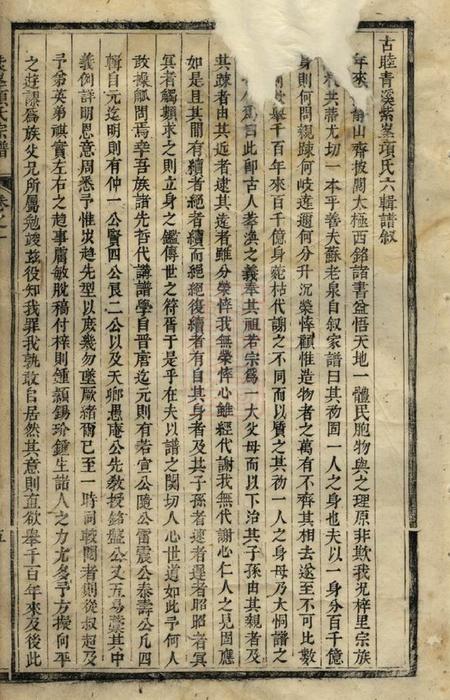 古睦青溪紫峯項氏六輯譜叙
年來 靜山齋披閱太極西銘諸書益悟天地一體民胞物與之理原非欺我況梓里宗族
共蕃尤切一本乎善夫蘇老泉自叙家譜曰其初固一人之身也夫以一身分百千億
身則何問親踈何岐逹邇何分升沉榮悴顧惟造物者之萬有不齊其相去遂至不可比數
舉千百年來百千億身菀枯代謝之不同而以質之其初一人之身毋乃大恫譜之
為言曰此卽古人萃渙之義奉其祖若宗為一大父母而以下治其子孫由其親者及
其踈者由其近者逮其遠者雖分榮悴我無榮悴心雖經代謝我無代謝心仁人之見固應
如是且其間有續者絕者續而絕絕復續者有自其身者及其子孫者速者遲者昭昭者冥
冥者觸類求之則立身之鑑傳世之符胥于是乎在夫以譜之関切人心世道如此予何人
敢操觚問焉幸吾族諸先哲代講譜學自晋唐迄元則有若宣公隨公雷震公泰壽公凡四
輯自元迄明則有仲一公賢四公艮二公以及天卿愚庵公先教授銘盤公又五易藁其中
義例詳明恩意周悉予惟炭趋先型以庶幾勿墜厥緒爾已至一時詞敢聞者則從叔超及
予弟英弟祺實左右之趋事肅敏脫稿付梓則鍾顥錫玠鍾生諸人之力尤多予方操向平
之遊謬為族父兄所属勉竣茲役知我罪我孰敢自居然其意則直欲舉千百年來及後此
項氏宗譜
卷之一
五